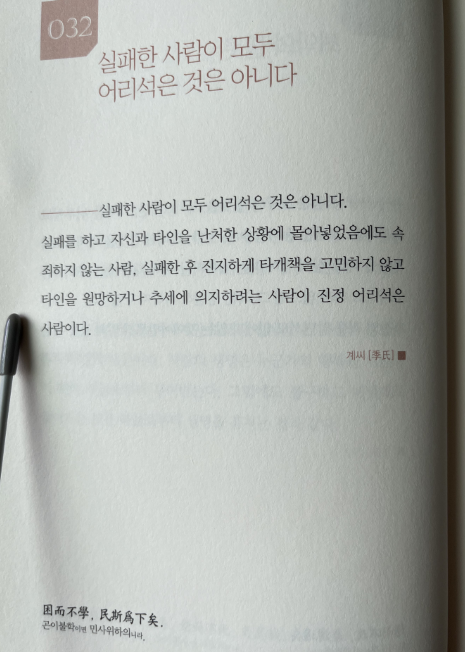 032
실패한 사람이 모두
어리석은 것은 아니다
실패한 사람이 모두 어리석은 것은 아니다.
실패를 하고 자신과 타인을 난처한 상황에 몰아넣었음에도 속
죄하지 않는 사람, 실패한 후 진지하게 타개책을 고민하지 않고
타인을 원망하거나 추세에 의지하려는 사람이 진정 어리석은
사람이다.
계씨 [季氏] ■
困而不學, 民斯爲下矣.
곤이불학이면 민사위하의니라.